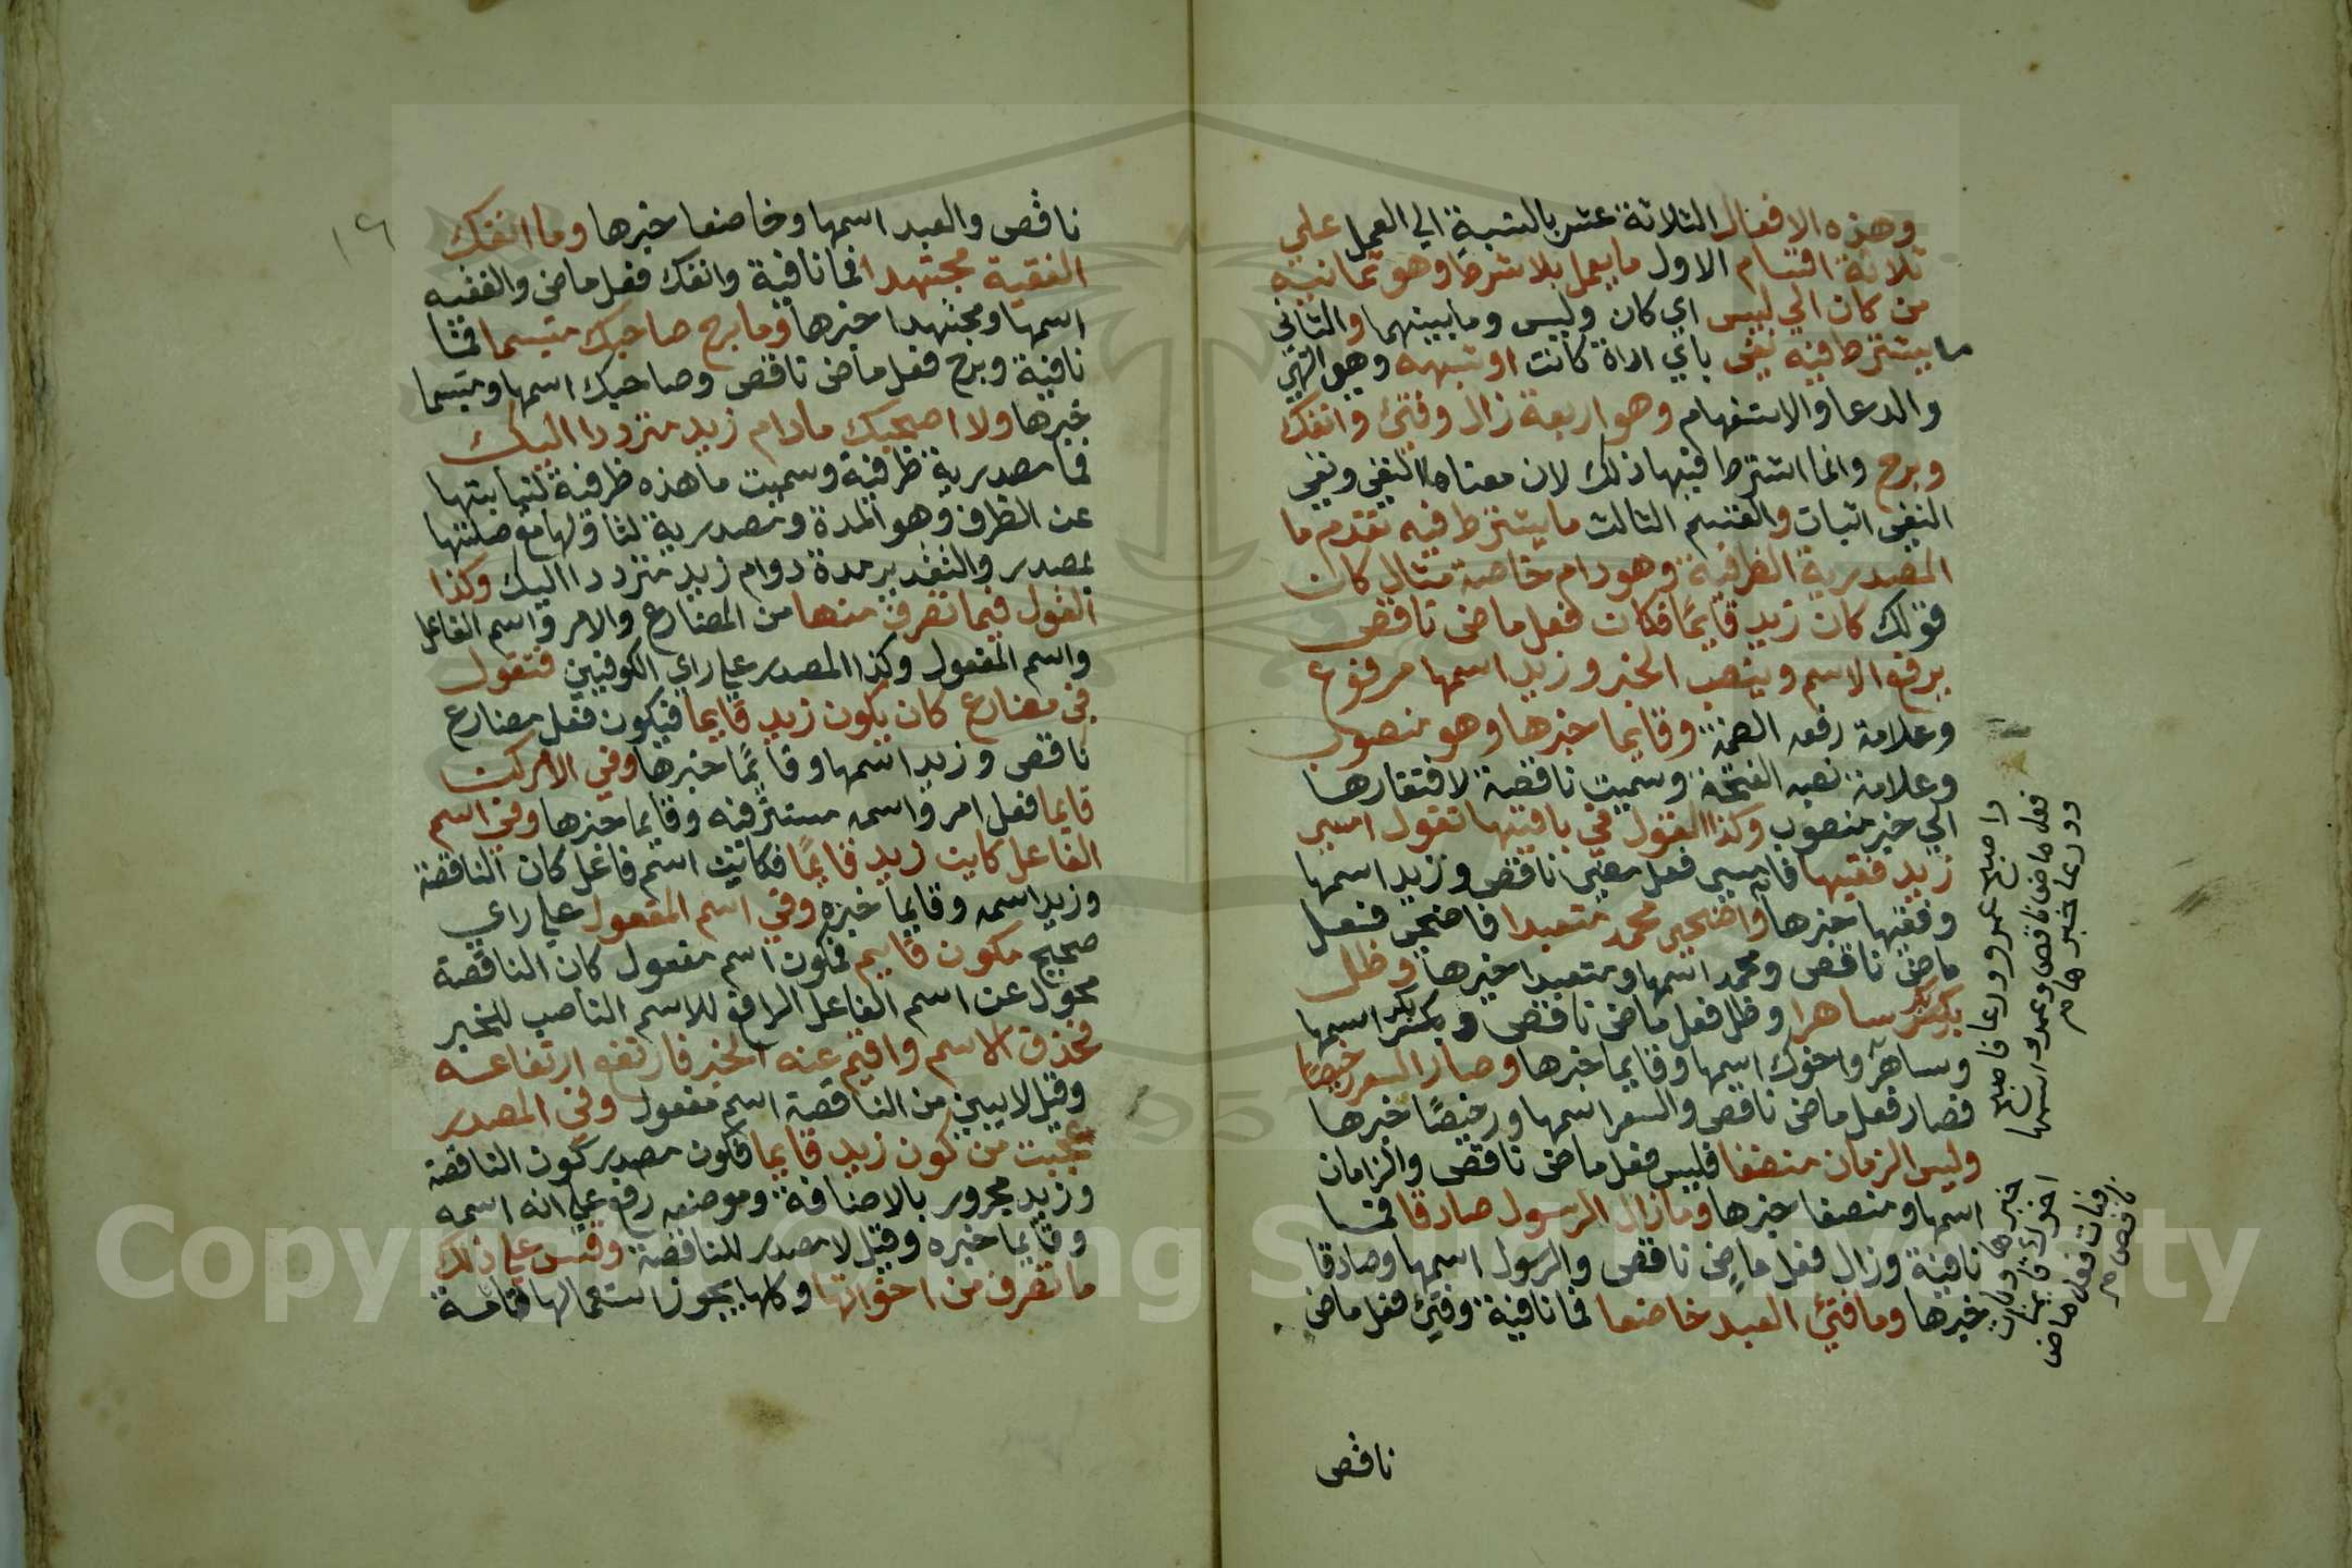 وهذه الافعال الثلاثة عشر بالنسبة الي العمل علي
ثلاثة اقسام الاول ما يعمل بلا شرط وهو ثمانية
من كان الي ليس اي كان وليس وما بينهما والثاني
ما يشترط فيه نفي باي اداة كانت او شبهه وهو النهي
والدعا والاستفهام وهو اربعة زال وفتئ وانفك
وبرح وانما اشترط فيها ذلك لان معناها النفي ونفي
النفي اثبات والقسم الثالث ما يشترط فيه تقدم ما
المصدرية الظرفية وهو دام خاصة مثال كان
قولك كان زيد قايمًا فكان فعل ماض ناقص
يرفع الاسم وينصب الخبر وزيد اسمها مرفوع
وعلامة رفعه الضمة وقايما خبرها وهو منصوب
وعلامة نصبه الفتحة وسميت ناقصة لافتقارها
الي خبر منصوب وكذا القول في باقيها تقول امسي
زيد فقيها فامسي فعل مضي ناقص وزيد اسمها
وفقيها خبرها واضحي محمد متعبدا فاضحي فعل
ماض ناقص ومحمد اسمها ومتعبدا خبرها وظل
بكر ساهرا وظل فعل ماض ناقص وبكر اسمها
وساهرا واخوك اسمها وقايما خبرها وصار السعر رخيصًا
فصار فعل ماض ناقص والسعر اسمها ورخيصًا خبرها
وليس الزمان منصفا فليس فعل ماض ناقص والزمان
اسمها ومنصفا خبرها وما زال الرسول صادقا فما
نافية وزال فعل ماض ناقص والرسول اسمها وصادقا
خبرها وما فتئ العبد خاضعا فما نافية وفتئ فعل ماض
ناقص
واصبح عمرو ورعا فاصبح
فعل ماض ناقص وعمرو اسمها
وورعا خبرها م
خبرها وبات
اخوك قايما
فبات فعل ماض
ناقص م
١٦
ناقص والعبد اسمها وخاضعا خبرها وما انفك
الفقية مجتهدا فما نافية وانفك فعل ماض والفقيه
اسمها ومجتهدا خبرها وما برح صاحبك متبسما فما
نافية وبرح فعل ماض ناقص وصاحبك اسمها ومتبسما
خبرها ولا اصحبك مادام زيد مترددا اليك
فما مصدرية ظرفية وسميت ما هذه ظرفية لنيابتها
عن الظرف وهو المدة ومصدرية لتاولها مع صلتها
بمصدر والتقدير مدة دوام زيد مترددا اليك وكذا
القول فيما تصرف منها من المضارع والامر واسم الفاعل
واسم المفعول وكذا المصدر علي راي الكوفيين فتقول
في مضارع كان يكون زيد قايما فيكون فعل مضارع
ناقص وزيد اسمها وقايمًا خبرها وفي الامر كن
قايما فعل امر واسمه مستتر فيه وقايما خبرها وفي اسم
الفاعل كاين زيد قايمًا فكاين اسم فاعل كان الناقصة
وزيد اسمه وقايما خبره وفي اسم المفعول علي راي
صحيح مكون قايم فمكون اسم مفعول كان الناقصة
محول عن اسم الفاعل الرافع للاسم الناصب للخبر
فحذف الاسم واقيم عنه الخبر فارتفع ارتفاعه
وقيل لا يبني من الناقصة اسم مفعول وفي المصدر
عجبت من كون زيد قايما فكون مصدر كون الناقصة
وزيد مجرور بالاضافة وموضعه رفع علي انه اسمه
وقايما خبره وقيل لا مصدر للناقصة وقس علي ذلك
ما تصرف من اخواتها وكلها يجوز استعمالها تامة
Copyright © King Saud University
1957